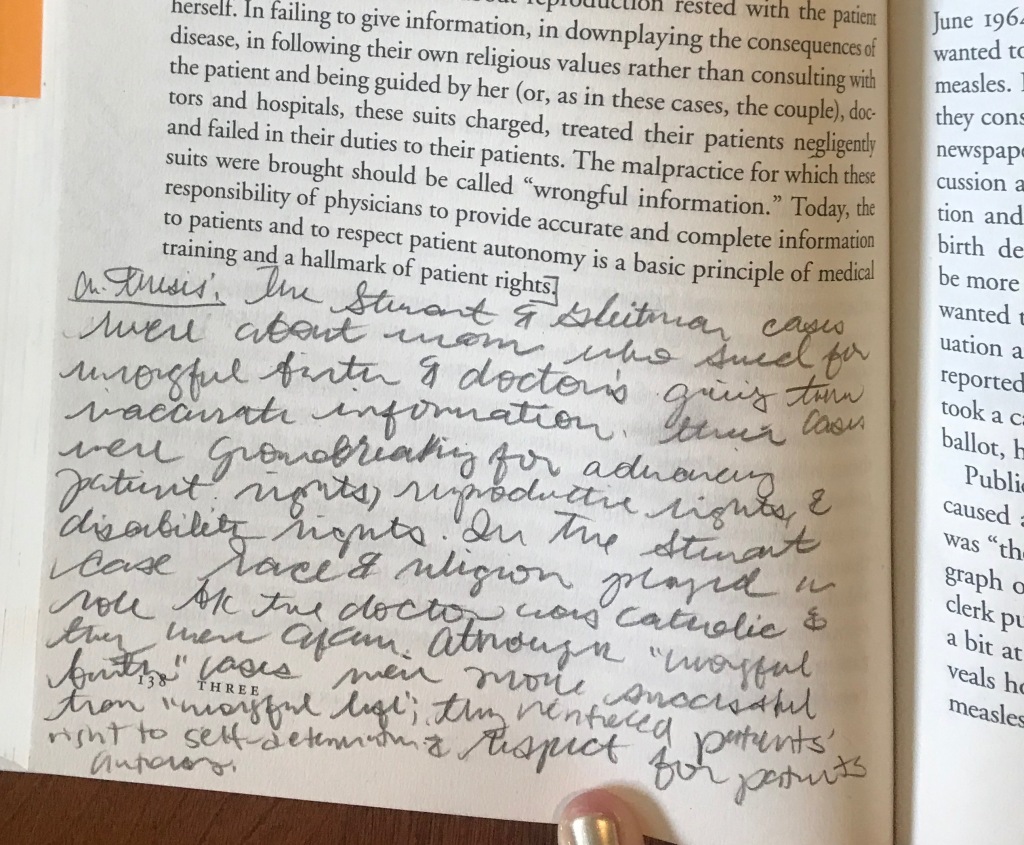 reproduction rested with the patient
herself. In failing to give information, in downplaying the consequences of
disease, in following their own religious values rather than consulting with
the patient and being guided by her (or, as in these cases, the couple), doc-
tors and hospitals, these suits charged, treated their patients negligently
and failed in their duties to their patients. The malpractice for which these
suits were brought should be called “wrongful information.” Today, the
responsibility of physicians to provide accurate and complete information
to patients and to respect patient autonomy is a basic principle of medical
training and a hallmark of patient rights.]
Ch. Thesis: The Stewart & Gleitman cases
were about mom who sued for
wrongful birth & doctors giving them
inaccurate information. Their cases
were groundbreaking for advancing
patient rights, reproductive rights, &
disability rights. In the Stewart
case race & religion played a
role b/c the doctor was Catholic &
they were . Although "wrongful
birth" cases were more successful
138 THREE
than "wrongful life"; they patients'
right to self-determin & respect for patients
autonomy.
June 196
wanted to
measles.
they cons
newspape
cussion a
tion and
birth de
be more
wanted t
uation a
reported
took a c
ballot, h
Public
caused a
was “th
graph o
clerk pu
a bit at
veals ho
measles